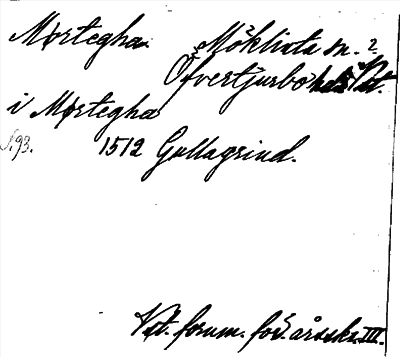 Mørtegha Möklinta sn. ?
Öfvertjurbo hd. Vst.
i Mørtegha
S. 93. 1512 Gullagrind.
Vst. fornm. för. årsskr. III.